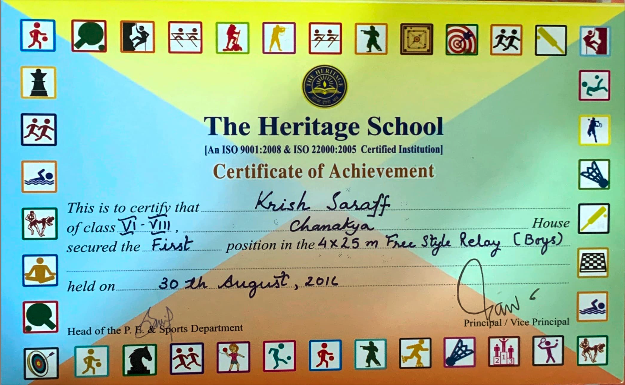 THE HERITAGE SCHOOL
The Heritage School
[An ISO 9001:2008 & ISO 22000:2005 Certified Institution]
Certificate of Achievement
This is to certify that Krish Saraff
of class VI - VIII, Chanakya House
secured the First position in the 4x25 m Free Style Relay (Boys)
held on 30 th August, 2016
Head of the P. E. & Sports Department
Principal / Vice Principal